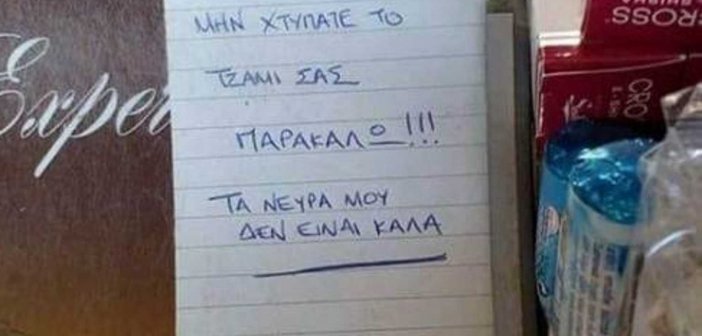 ΜΗΝ ΧΤΥΠΑΤΕ ΤΟ
ΤΖΑΜΙ ΣΑΣ
ΠΑΡΑΚΑΛΟ!!!
ΤΑ ΝΕΥΡΑ ΜΟΥ
ΔΕΝ ΕΙΝΑΙ ΚΑΛΑ
Exper
CROSS
CRO